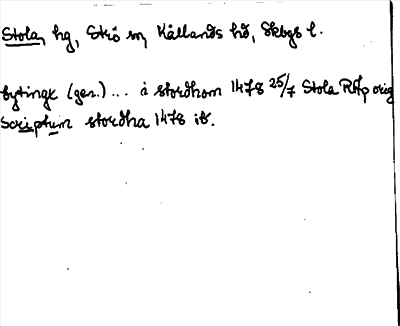 Stola, hg, Strö sn, Kållands hd, Skbgs l.
bytingx (gen.) ... á stordhom 1478 25/7 Stola RAp orig
Scriptum stordha 1478 ib.